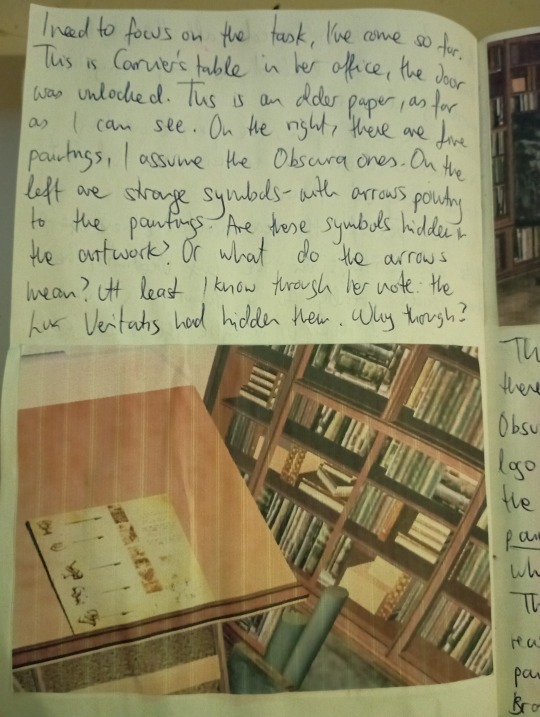 I need to focus on the task, I've come so far.
This is Carvier's table in her office, the door
was unlocked. This is an older paper, as far
as I can see. On the right, there are five
paintings, I assume the Obscura ones. On the
left are strange symbols - with arrows pointing
to the paintings. Are these symbols hidden in
the artwork? Or what do the arrows
mean? At least I know through her note: the
Lux Veritatis had hidden them. Why though?
Th
there
Obsu
logo
the
pai
wh
Th
rea
pai
Bro